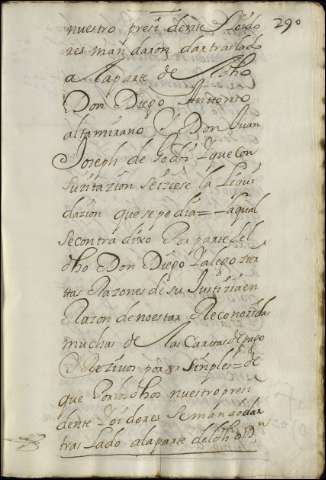 290
nuestro presidente Y oydo
res mandaron dar traslado
a la parte de el dho
Don Diego Antonio
altamirano Y Don Juan
Joseph de Y que con
su citazion se hiziese la liqui
dazion que se pedia = La qual
se contradixo Por parte del
dho Don Diego Y alego zier
tas Razones de su Justizia en
Razon de no estar Reconozidas
muchas de las Cartas de pago
Y Rezivos por ser simples = de
que Por los dhos nuestro presi
dente Y oidores se mando dar
traslado a la parte del dho Dn